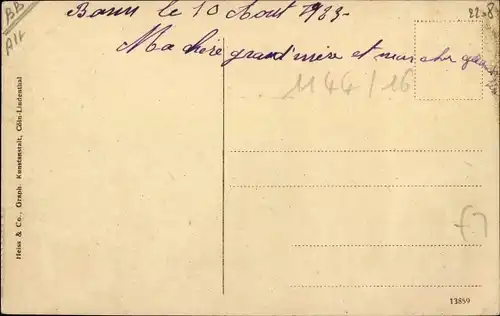 Bonn le 10 Aout 1923-
Ma chère grand'mère et mon cher
1144/16
22.8
BB
Alt
Heiss & Co., Graph. Kunstanstalt, Cöln-Lindenthal
13859